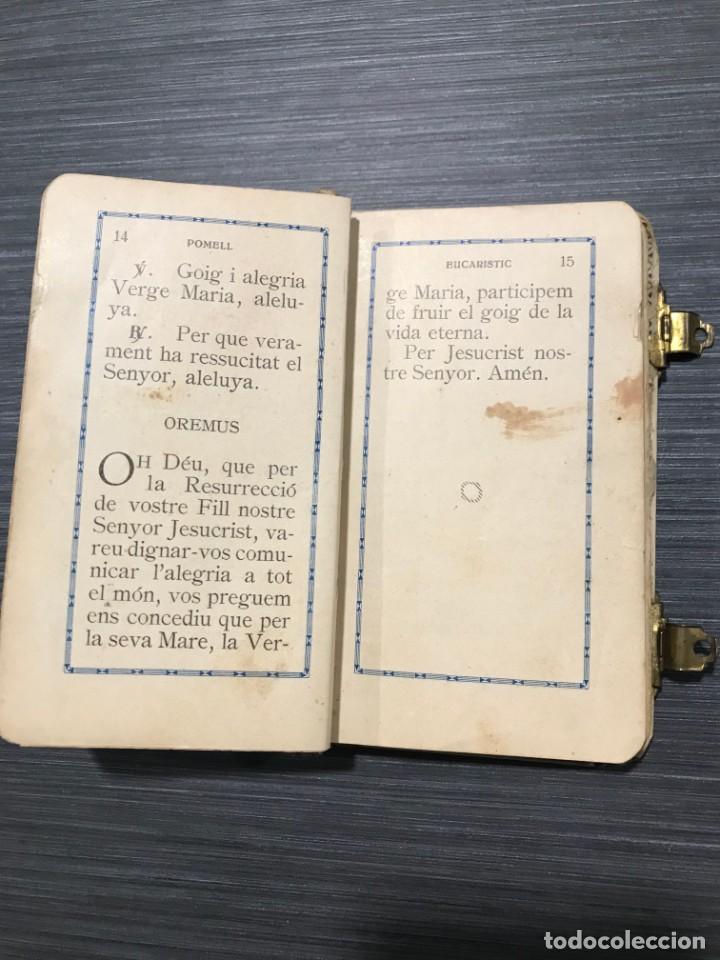 14 POMELL
℣. Goig i alegria
Verge Maria, alelu-
ya.
℟. Per que vera-
ment ha ressucitat el
Senyor, aleluya.
OREMUS
OH Déu, que per
la Resurrecció
de vostre Fill nostre
Senyor Jesucrist, va-
reu dignar-vos comu-
nicar l'alegria a tot
el món, vos preguem
ens concediu que per
la seva Mare, la Ver-
EUCARISTIC 15
ge Maria, participem
de fruir el goig de la
vida eterna.
Per Jesucrist nos-
tre Senyor. Amén.
todocoleccion.net